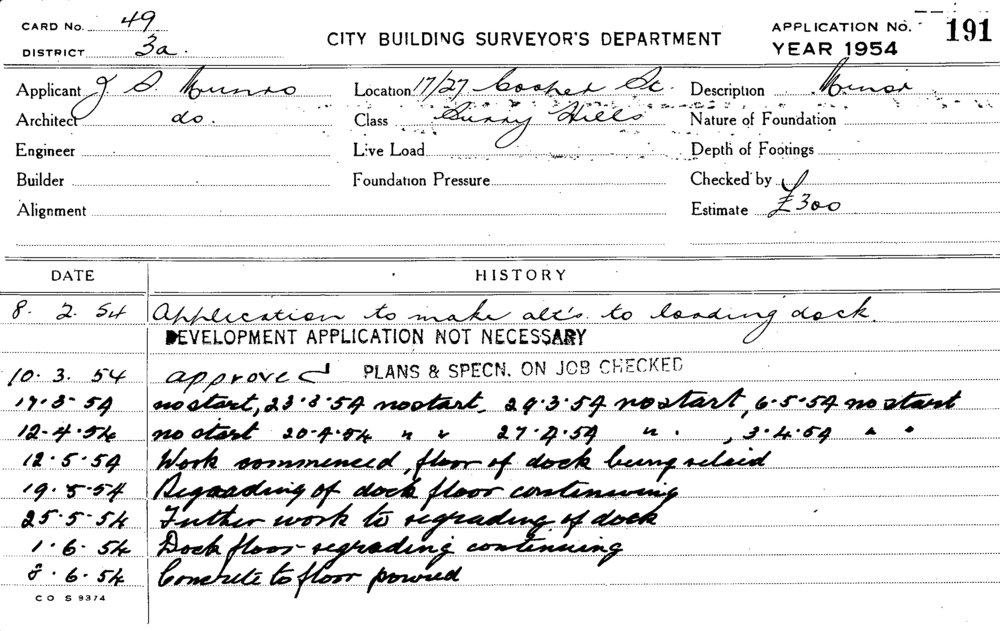 CARD No. 49
DISTRICT 3a.
CITY BUILDING SURVEYOR'S DEPARTMENT
APPLICATION No. 191
YEAR 1954
Applicant J S. Munro Location 17/27 Cooper St. Description Minor
Architect do. Class Surry Hills Nature of Foundation
Engineer Live Load Depth of Footings
Builder Foundation Pressure Checked by
Alignment Estimate £300
DATE HISTORY
8. 2. 54 Application to make alt's. to loading dock.
DEVELOPMENT APPLICATION NOT NECESSARY
10. 3. 54 approved PLANS & SPECN. ON JOB CHECKED
17.3.54 no start, 23.3.54 no start, 29.3.54 no start, 6.5.54 no start
12.4.54 no start 20.4.54 " " 27.4.54 " . , 3.4.54 " "
12.5.54 Work commenced, floor of dock being relaid
19.5.54 Regrading of dock floor continuing
25.5.54 Futher work to regrading of dock
1.6.54 Dock floor regrading continuing
8.6.54 Concrete to floor poured
C O S 9374